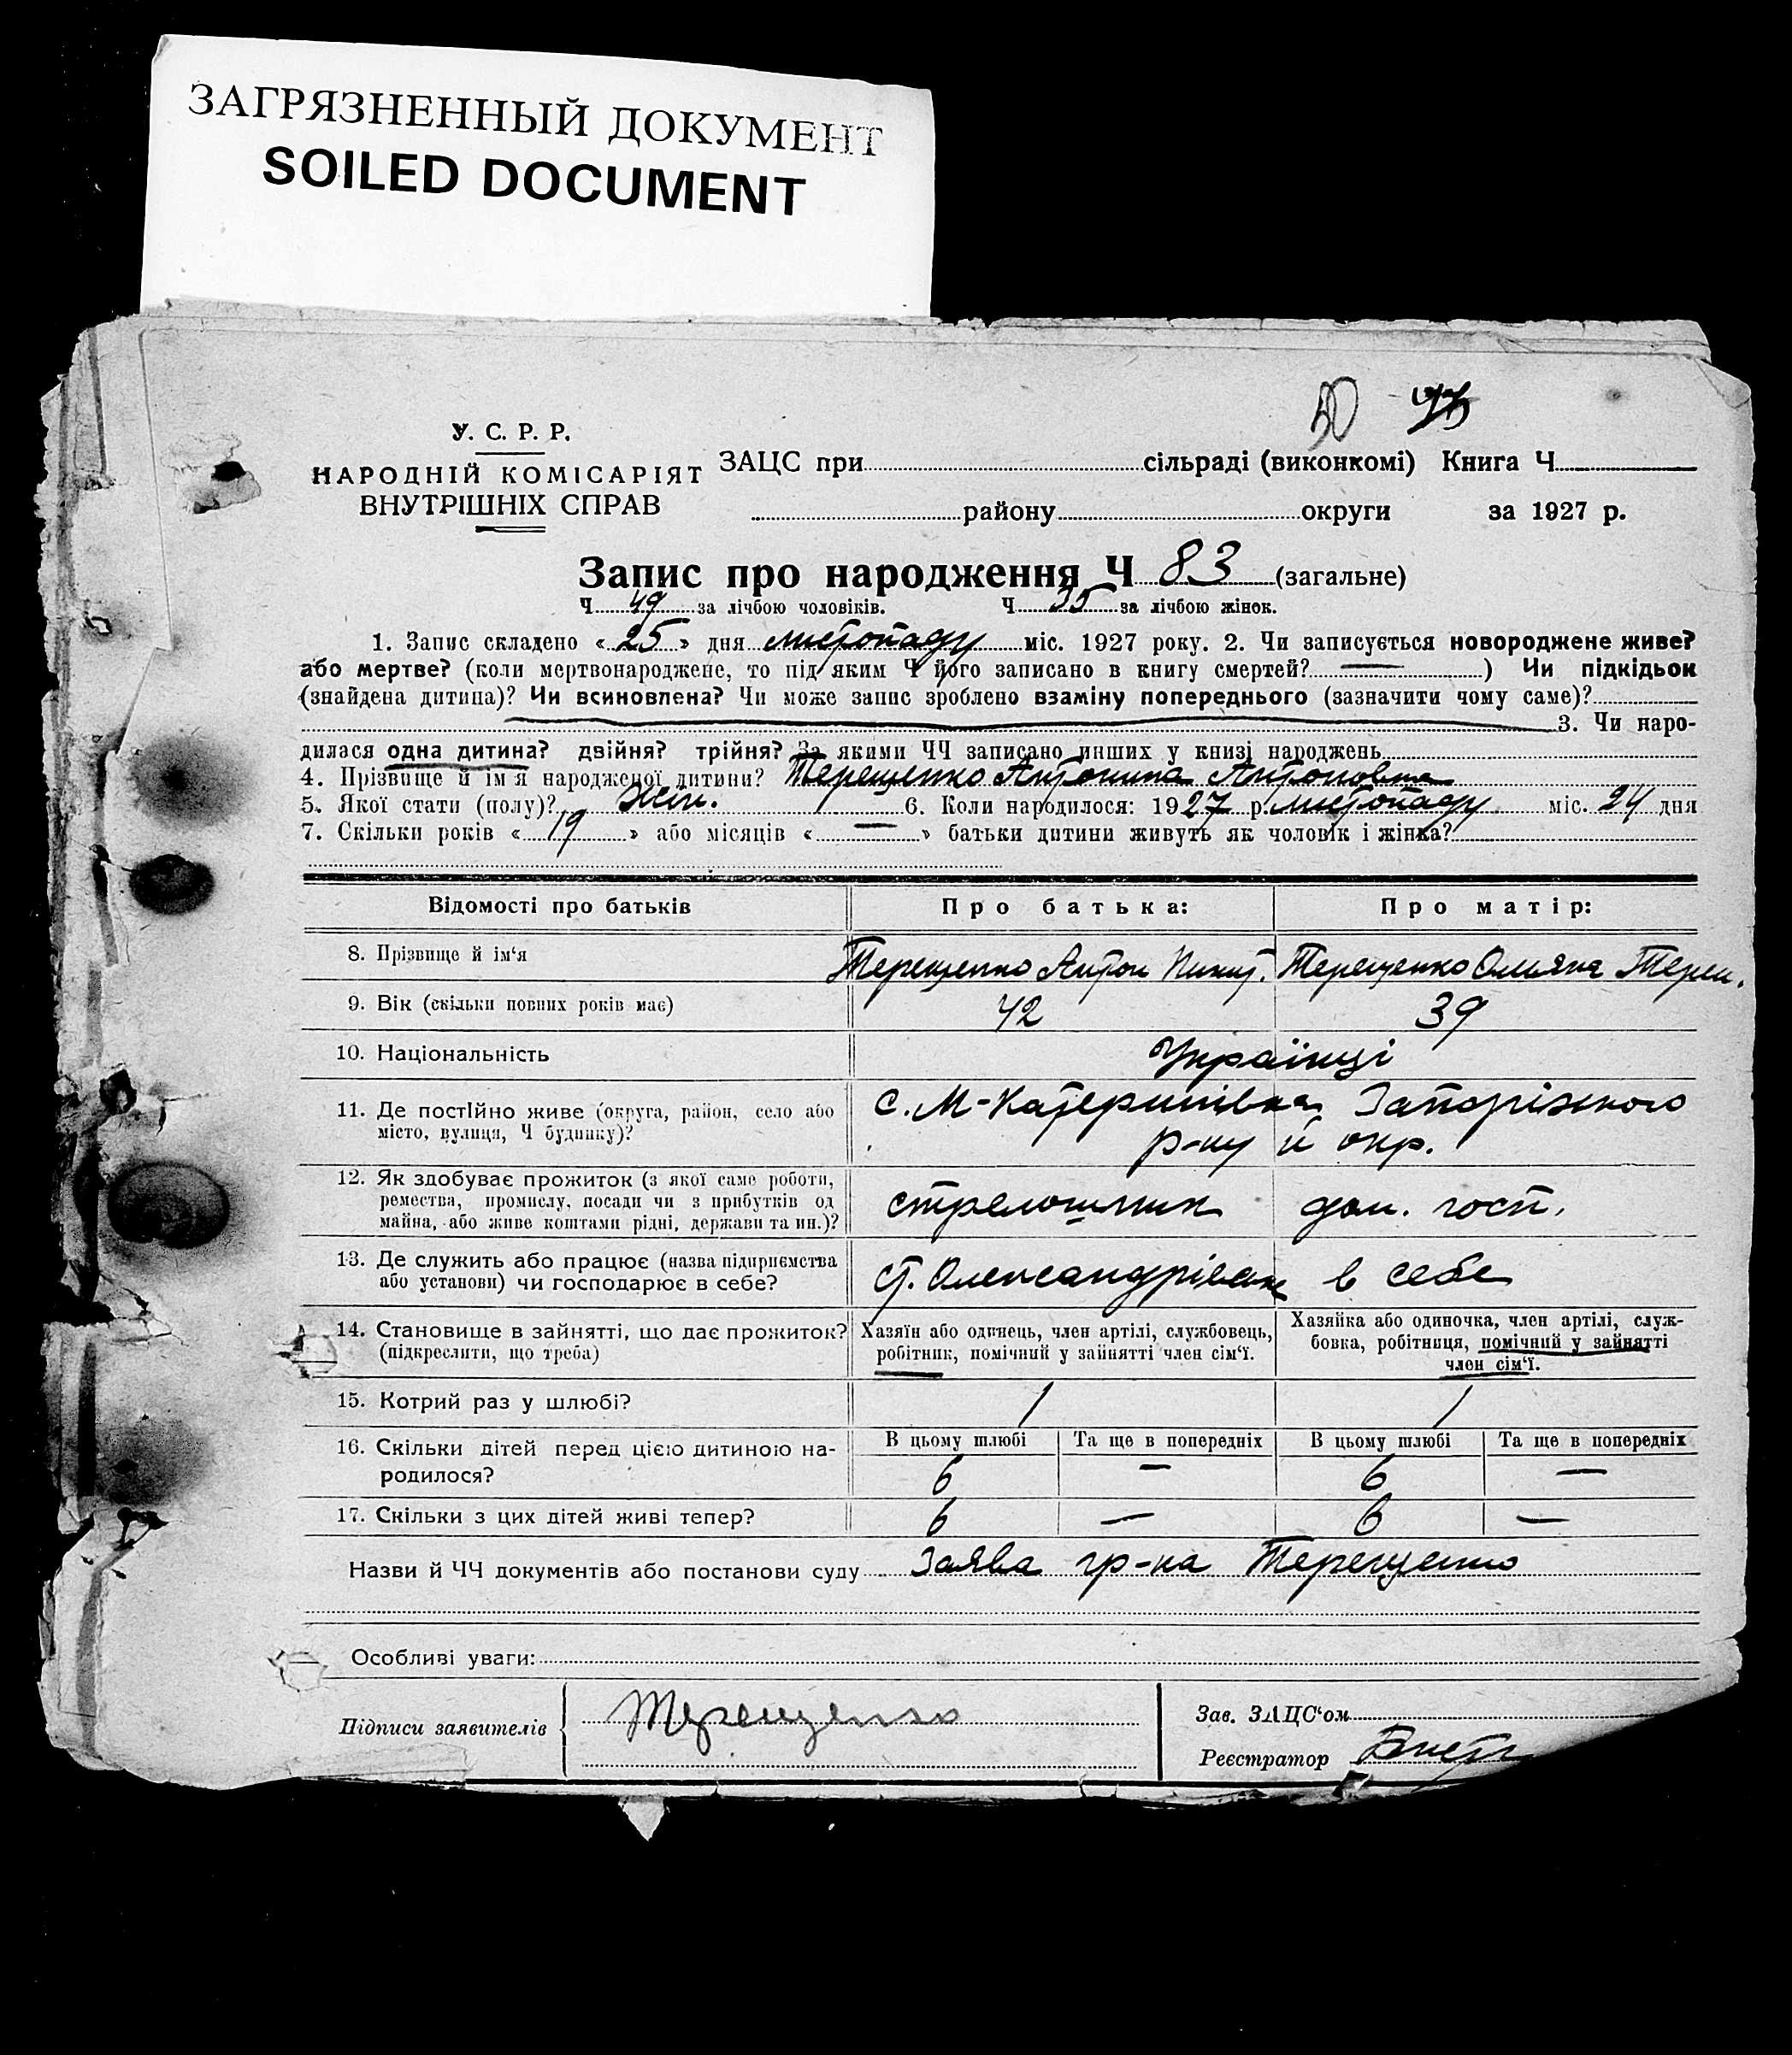 ЗАГРЯЗНЕННЫЙ ДОКУМЕНТ
SOILED DOCUMENT
50
У. С. Р. Р.
НАРОДНІЙ КОМІСАРІЯТ
ВНУТРІШНІХ СПРАВ
ЗАЦС при сільраді (виконкомі) Книга Ч.
району округи за 1927 р.
Запис про народження Ч 83 (загальне)
Ч. 49 за лічбою чоловіків. Ч. 35 за лічбою жінок.
1. Запис складено « 25 » дня листопаду міс. 1927 року. 2. Чи записується новороджене живе?
або мертве? (коли мертвонароджене, то під яким Ч його записано в книгу смертей? — ) Чи підкідьок
(знайдена дитина)? Чи всиновлена? Чи може запис зроблено взаміну попереднього (зазначити чому саме)?
3. Чи наро-
дилася одна дитина? двійня? трійня? За якими ЧЧ записано инших у книзі народжень
4. Прізвище й ім'я народженої дитини? Терещенко Антонина Антоновна
5. Якої стати (полу)? Жін. 6. Коли народилося: 1927 р. листопаду міс. 24 дня
7. Скільки років « 19 » або місяців « — » батьки дитини живуть як чоловік і жінка?
Відомості про батьків Про батька: Про матір:
8. Прізвище й ім'я Терещенко Антон Никит. Терещенко Олияна Терен.
9. Вік (скільки повних років має) 42 39
10. Національність Українці
11. Де постійно живе (округа, район, село або
місто, вулиця, Ч будинку)?
с. М-Катеринівка Запоріжського
р-ну й окр.
12. Як здобуває прожиток (з якої саме роботи,
ремества, промислу, посади чи з прибутків од
майна, або живе коштами рідні, держави та ин.)?
стрелошник дом. госп.
13. Де служить або працює (назва підприємства
або установи) чи господарює в себе?
ст. Олександрівськ в себе
14. Становище в зайнятті, що дає прожиток?
(підкреслити, що треба)
Хазяїн або одинець, член артілі, службовець,
робітник, помічний у зайнятті член сім'ї.
Хазяйка або одиночка, член артілі, служ-
бовка, робітниця, помічний у зайнятті
член сім'ї.
15. Котрий раз у шлюбі? 1 1
16. Скільки дітей перед цією дитиною на-
родилося?
В цьому шлюбі Та ще в попередніх В цьому шлюбі Та ще в попередніх
6 — 6 —
17. Скільки з цих дітей живі тепер? 6 — 6 —
Назви й ЧЧ документів або постанови суду Заява гр-на Терещенко
Особливі уваги:
Підписи заявителів Терещенко
Зав. ЗАЦС'ом
Реєстратор